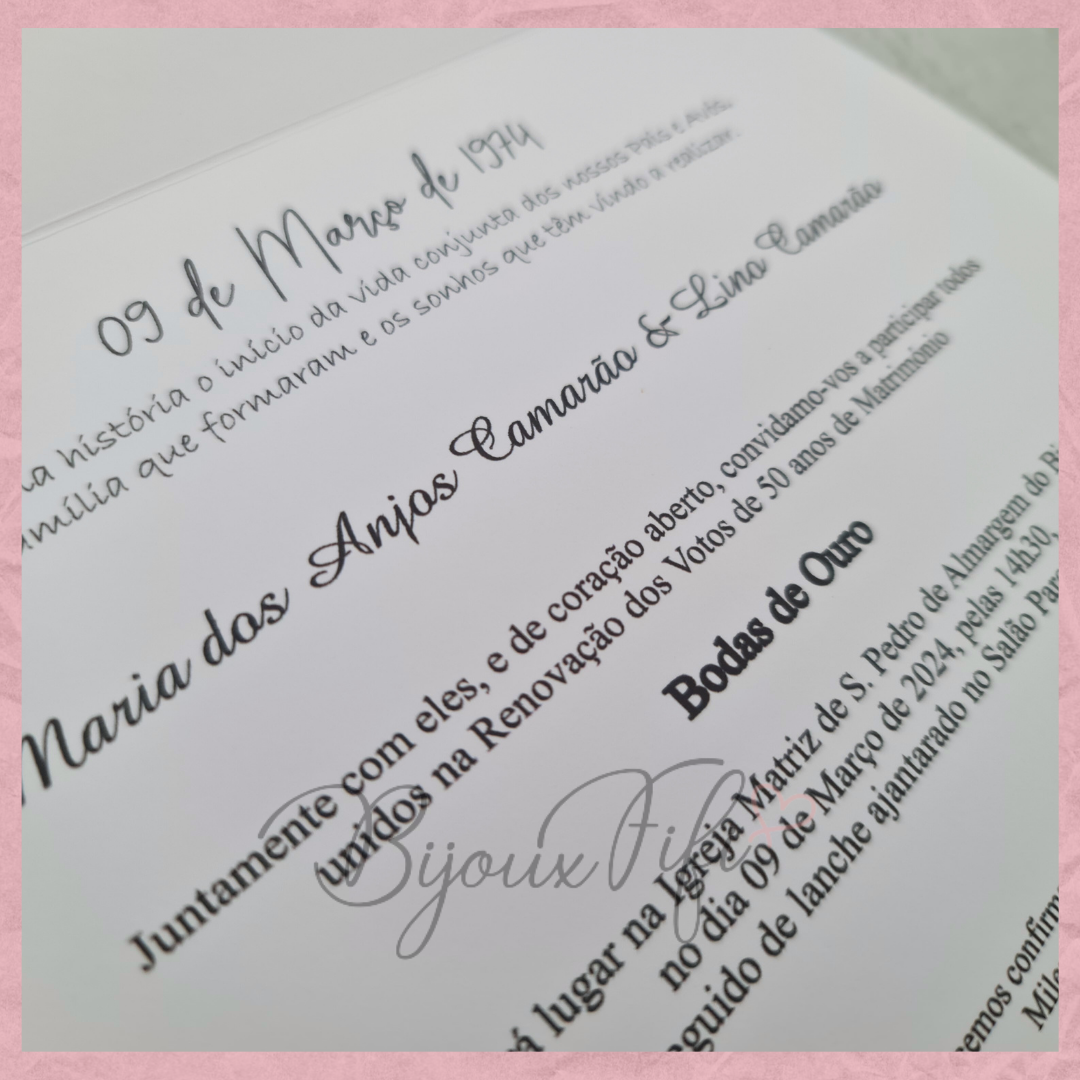 09 de Março de 1974
a história o início da vida conjunta dos nossos Pais e Avós.
amília que formaram e os sonhos que têm vindo a realizar.
Maria dos Anjos Camarão & Lino Camarão
Juntamente com eles, e de coração aberto, convidamo-vos a participar todos
unidos na Renovação dos Votos de 50 anos de Matrimónio
Bodas de Ouro
á lugar na Igreja Matriz de S. Pedro de Almargem do Bi
no dia 09 de Março de 2024, pelas 14h30,
eguido de lanche ajantarado no Salão Par
cemos confirm
Mile
Bijoux Fifi